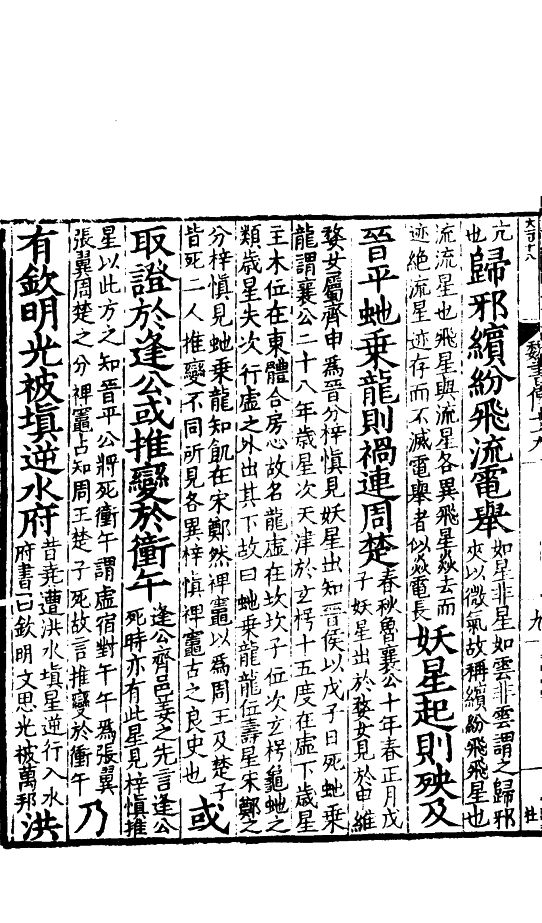 亢也歸邪繽紛飛流電舉如星非星如雲非雲謂之歸邪夾以微氣故稱繽紛飛飛星也
流流星也飛星與流星各異飛星焱去而迹絕流星迹存而不滅電舉者似焱電長妖星起則殃及
晉平虵乘龍則禍連周楚春秋魯襄公十年春正月戊子妖星出於婺女見於申維
婺女屬齊申為晉分梓慎見妖星出知晉侯以戊子日死虵乘龍謂襄公二十八年歲星次天津於玄枵十五度在虛下歲星
主木位在東體合房心故名龍虛在坎坎子位次玄枵龜虵之類歲星失次行虛之外出其下故曰虵乘龍龍位壽星宋鄭之
分梓慎見虵乘龍知飢在宋鄭然裨竈以為周王及楚子皆死二人推變不同所見各異梓慎裨竈古之良史也或
取證於逢公或推變於衝午逢公齊邑姜之先言逢公死時亦有此星見梓慎推
星以此方之知晉平公將死衝午謂虛宿對午午為張翼張翼周楚之分裨竈占知周王楚子死故言推變於衝午乃
有欽明光被填逆水府昔堯遭洪水填星逆行入水府書曰欽明文思光被萬邦洪